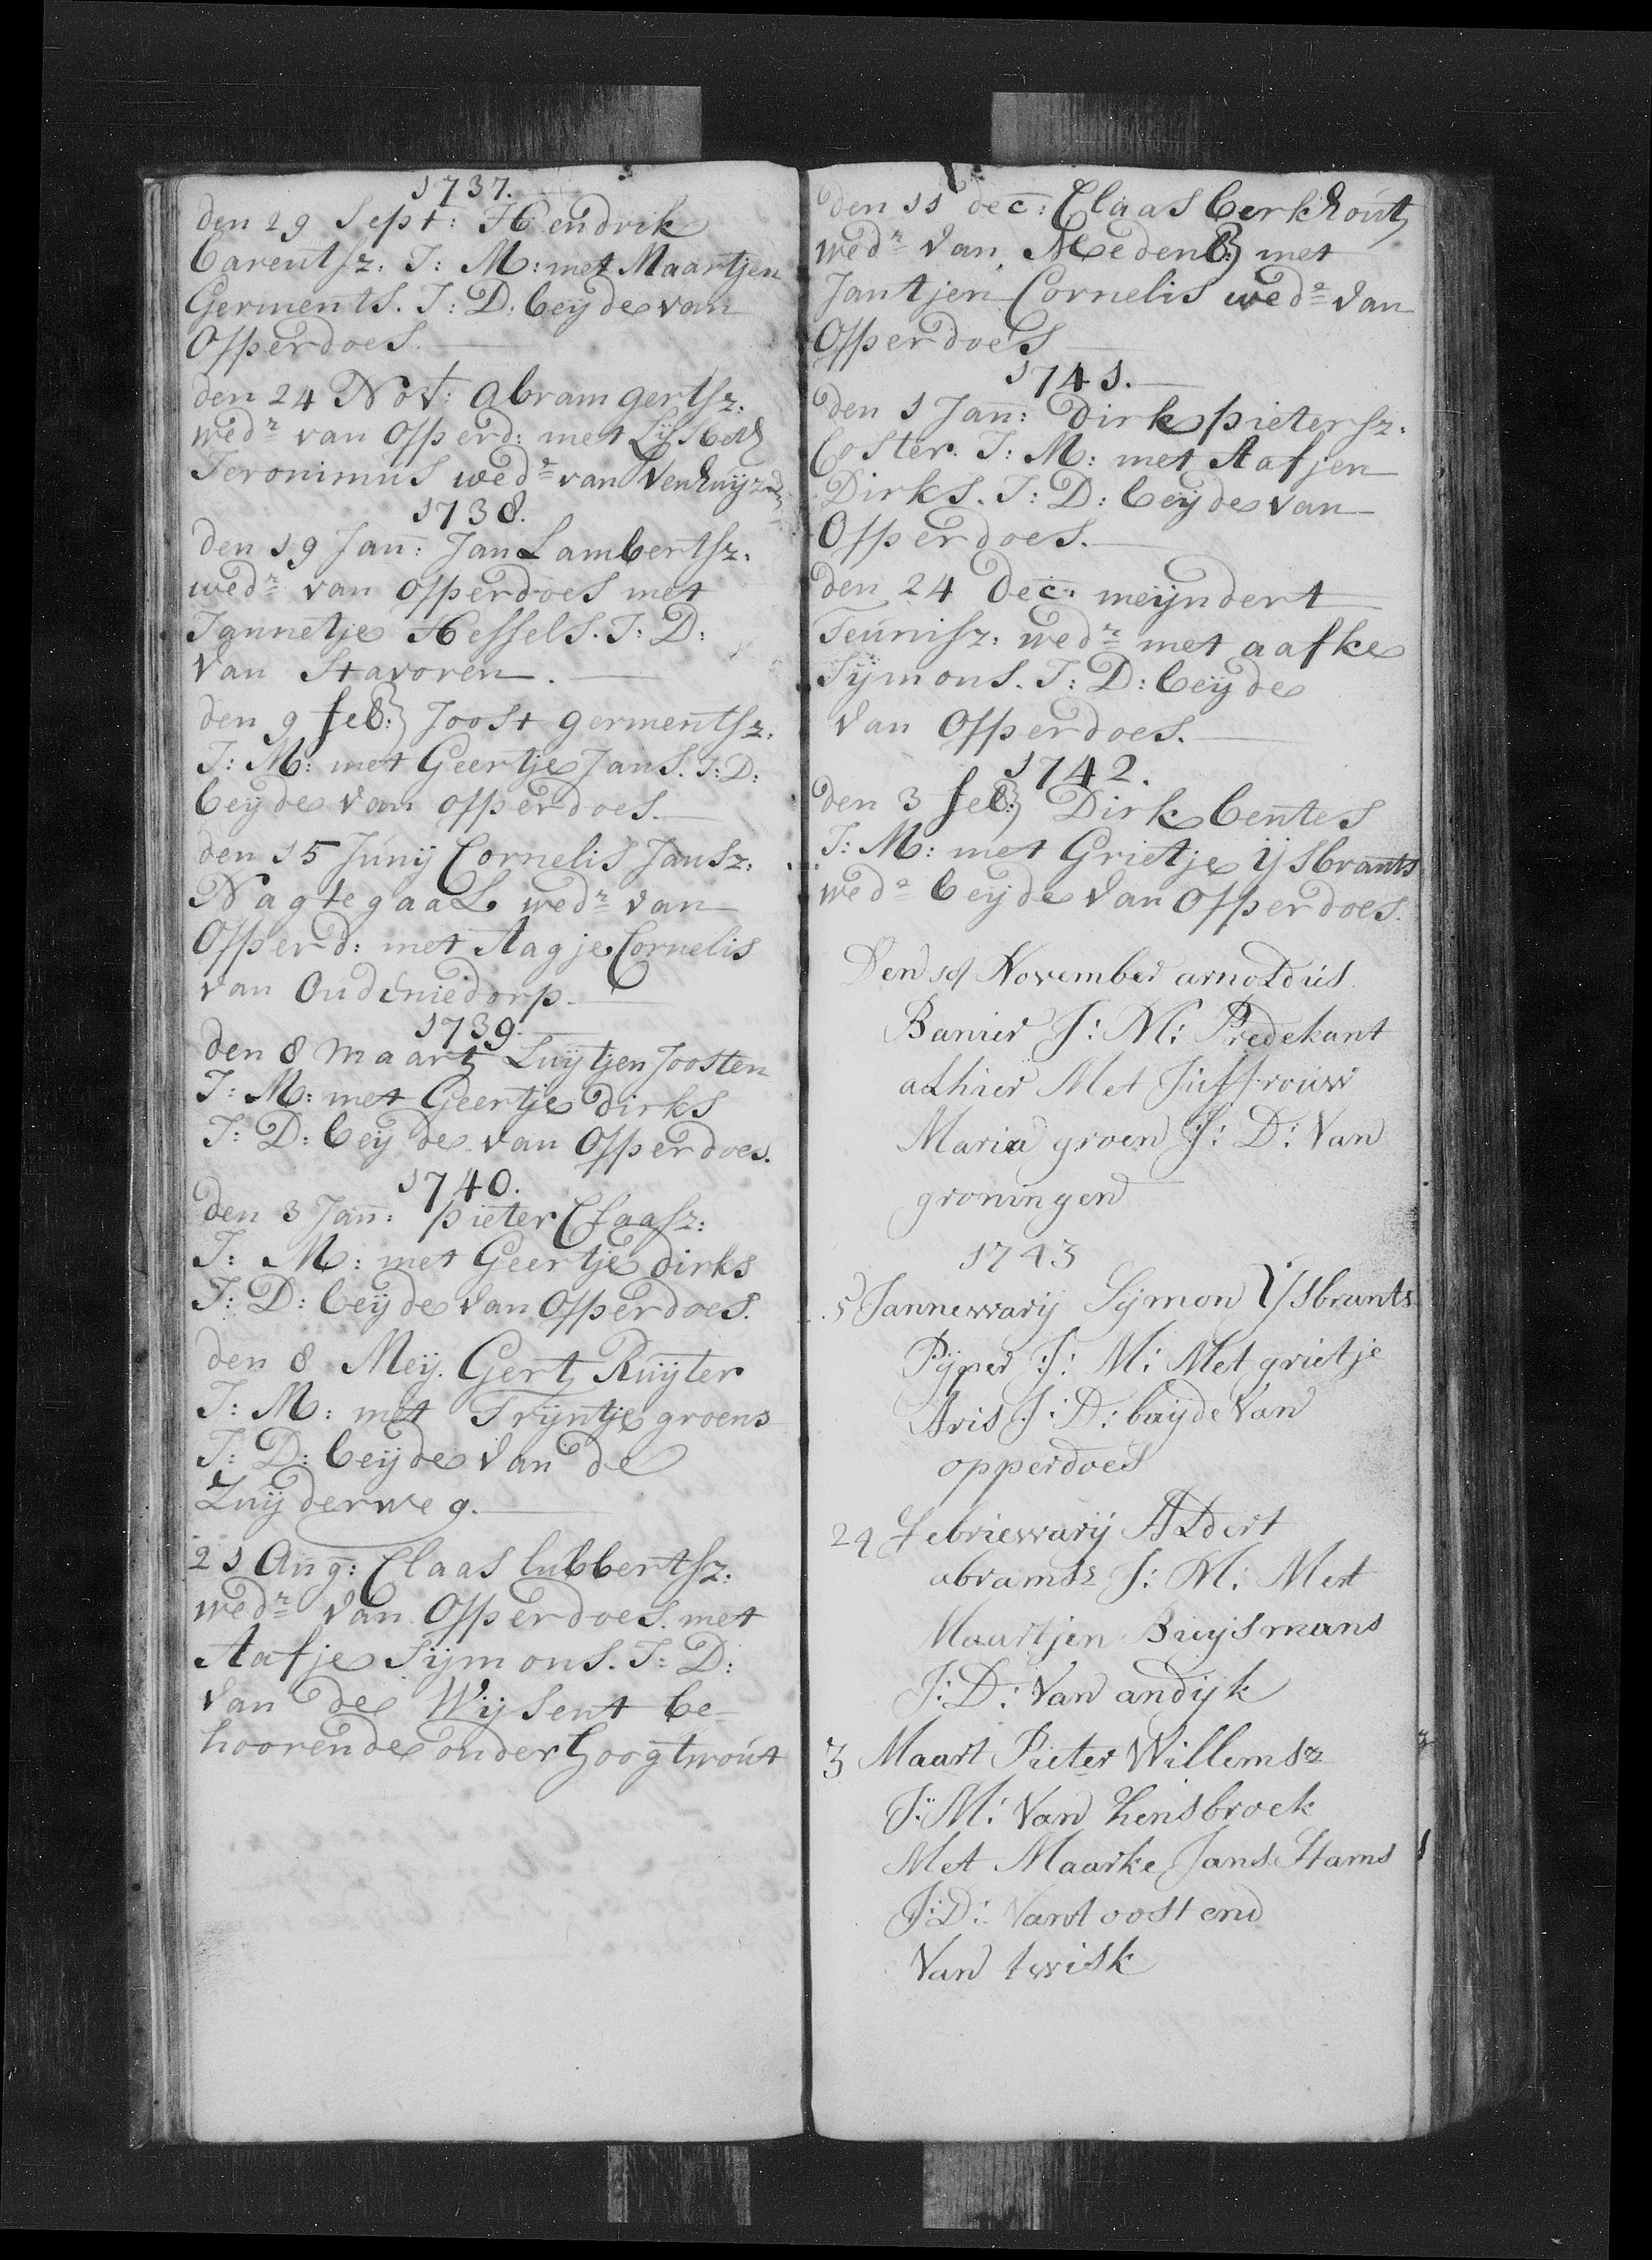 1737.
den 29 Sept: Hendrik
barentsz. J: M: met Maartjen
Germents. J: D: beyde van
Opperdoes.
den 24 Nov: abram gertsz.
wedr van Opperd: met Lijsbeth
Jeronimus wede van Venhuijz
1738.
den 19 Jan: Jan Lambertsz.
wedr van Opperdoes met
Jannetje Hessels. J: D:
van Stavoren.
den 9 feb: Joost germentsz.
J: M: met Geertje Jans. J: D:
beyde van opperdoes.
den 15 Junij Cornelis Jansz:
Nagtegaal wedr van
Opperd: met Aagje Cornelis
van Oudeniedorp.
1739.
den 8 maart Luijtjen Joosten
J: M: met Geertje dirks
J: D: beyde van Opperdoes.
1740.
den 3 Jan: pieter Claasz:
J: M: met Geertje dirks
J: D: beyde van Opperdoes.
den 8 Meij. Gert Ruijter
J: M: met Trijntje groens
J: D: beyde van de
Zuijderweg.
21 Aug: Claas lubbertsz:
wedr van Opperdoes. met
Aafje Sijmons. J: D:
van de Wijsent be-
hoorende onder hoogtwout
den 11 dec: Claas berkhout
wedr van Medenb: met
Jantjen Cornelis wede van
Opperdoes
1741.
den 1 Jan: dirk pietersz.
Coster. J: M: met Aafjen
Dirks. J: D: beyde van
Opperdoes.
den 24 dec: meijndert
Teunisz: wedr met aafke
Sijmons. J: D: beyde
van Opperdoes.
1742.
den 3 feb: Dirk bentes
J: M: met Grietje ijsbrants
wede beyde van Opperdoes.
Den November arnoldus
Banier J: M: Predekant
alhier Met Juffrouw
Maria groen J: D: Van
groningen
1743
5 Jannewarij Sijmon Ijsbrants
Pijper J: M: Met grietje
Aris J: D: baijde Van
opperdoes
24 febriewarij Aldert
abramsz J: M: Met
Maartjen Buijsmans
J: D: Van andijk
3 Maart Pieter Willemsz
J: M: Van hensbroek
Met Maarke Jans Stams
J: D: Vant oost end
Van twisk